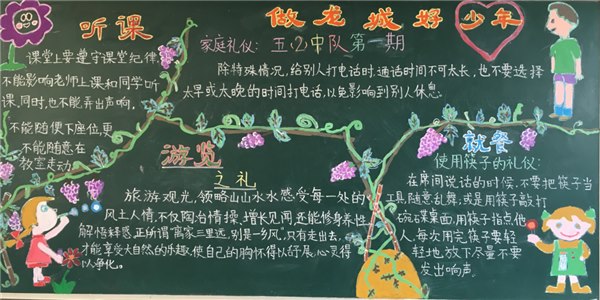 听课
课堂上要遵守课堂纪律,
不能影响老师上课和同学听
课,同时,也不能弄出声响,
不能随便下座位,更
不能随意在
教室走动。
做龙城好少年
家庭礼仪:五(2)中队第一期
除特殊情况,给别人打电话时,通话时间不可太长,也不要选择
太早或太晚的时间打电话,以免影响到别人休息。
游览
之礼
旅游观光,领略山山水水感受每一处的
风土人情,不仅陶冶情操,增长见闻还能修身养性
解悟释惑,正所谓“离家三里远,别是一乡风”。只有走出去,
才能享受大自然的乐趣,使自己的胸怀得以舒展,心灵得
以净化。
就餐
使用筷子的礼仪:
在席间说话的时候,不要把筷子当
工具,随意乱舞,或是用筷子敲打
碗碟桌面,用筷子指点他
人,每次用完筷子要轻
轻地放下尽量不要
发出响声。